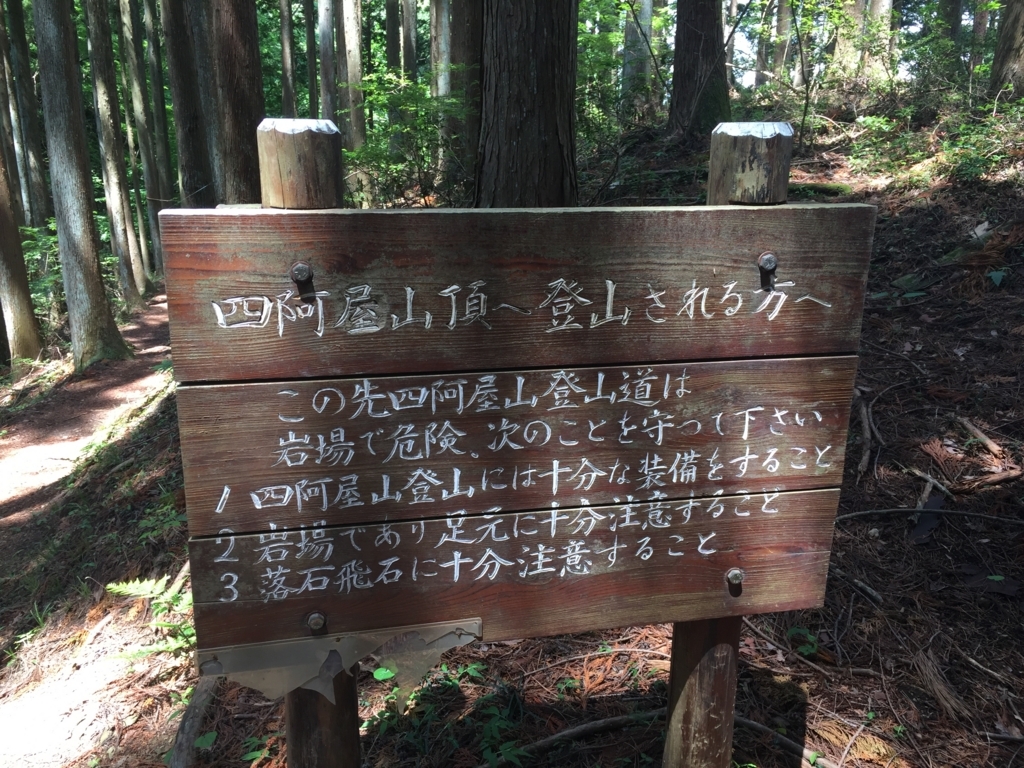 四阿屋山頂へ登山される方へ
この先四阿屋山登山道は
岩場で危険、次のことを守って下さい
1 四阿屋山登山には十分な装備をすること
2 岩場であり足元に十分注意すること
3 落石飛石に十分注意すること